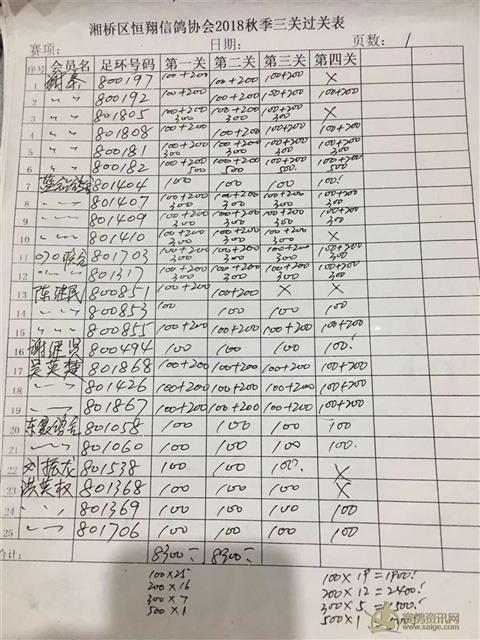 湘桥区恒翔信鸽协会2018秋季三关过关表
赛项: 日期: 页数: 1
序号 会员名 足环号码 第一关 第二关 第三关 第四关
1 谢泰 800197 100+200 100+200 100+200 X
2 〃 〃 800192 100+200 100+200 100+200 100+200
3 〃 〃 801805 100+200 300 100+200 300 100+200 300 X
4 〃 〃 801808 100+200 100+200 100+200 100+200
5 〃 〃 800181 100+200 300 100+200 300 100+200 300 100+200 300
6 〃 〃 800182 100+200 500 100+200 500 100+200 500 100+200 500
7 801404 100 100 100 100
8 801407 100+200 300 100+200 300 100+200 300 100+200 300
9 801409 100+200 300 100+200 300 100+200 300 100+200 300
10 801410 100+200 300 100+200 300 100+200 300 X
11 070联合 801703 100+200 300 100+200 300 100+200 300 100+200 300
12 801317 100+200 300 100+200 300 100+200 300 100+200 300
13 陈继民 800851 100+200 100+200 X X
14 800853 100 100 100 100
15 〃 〃 〃 800855 100+200 100+200 100+200 100+200
16 谢继贤 800494 100 100 100 100
17 吴英楚 801868 100+200 100+200 100+200 100+200
18 801426 100+200 100+200 100+200 100+200
19 801867 100+200 100+200 100+200 100+200
20 801058 100 100 100 100
21 801060 100 100 100 100
22 刘振龙 801538 100 100 100 X
23 洪英权 801368 100 100 100 X
24 801369 100 100 100 100
25 801706 100 100 100 100
合计: 8300 8300
100×25
200×16
300×7
500×1
100×19=1900
200×12=2400
300×5=1500
500×1
赛鸽资讯网
www.saige.com